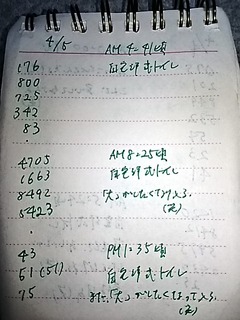 4/5 AM 4:41頃
176 自宅洋式トイレ
800
725
342
83
.
4705 AM 8:25頃
1663 自宅洋式トイレ
8492 「大」がしたくて
5423 (大)
.
43 PM 1:35頃
51 (51) 自宅洋式トイレ
75 また「大」がしたくなって
(大)